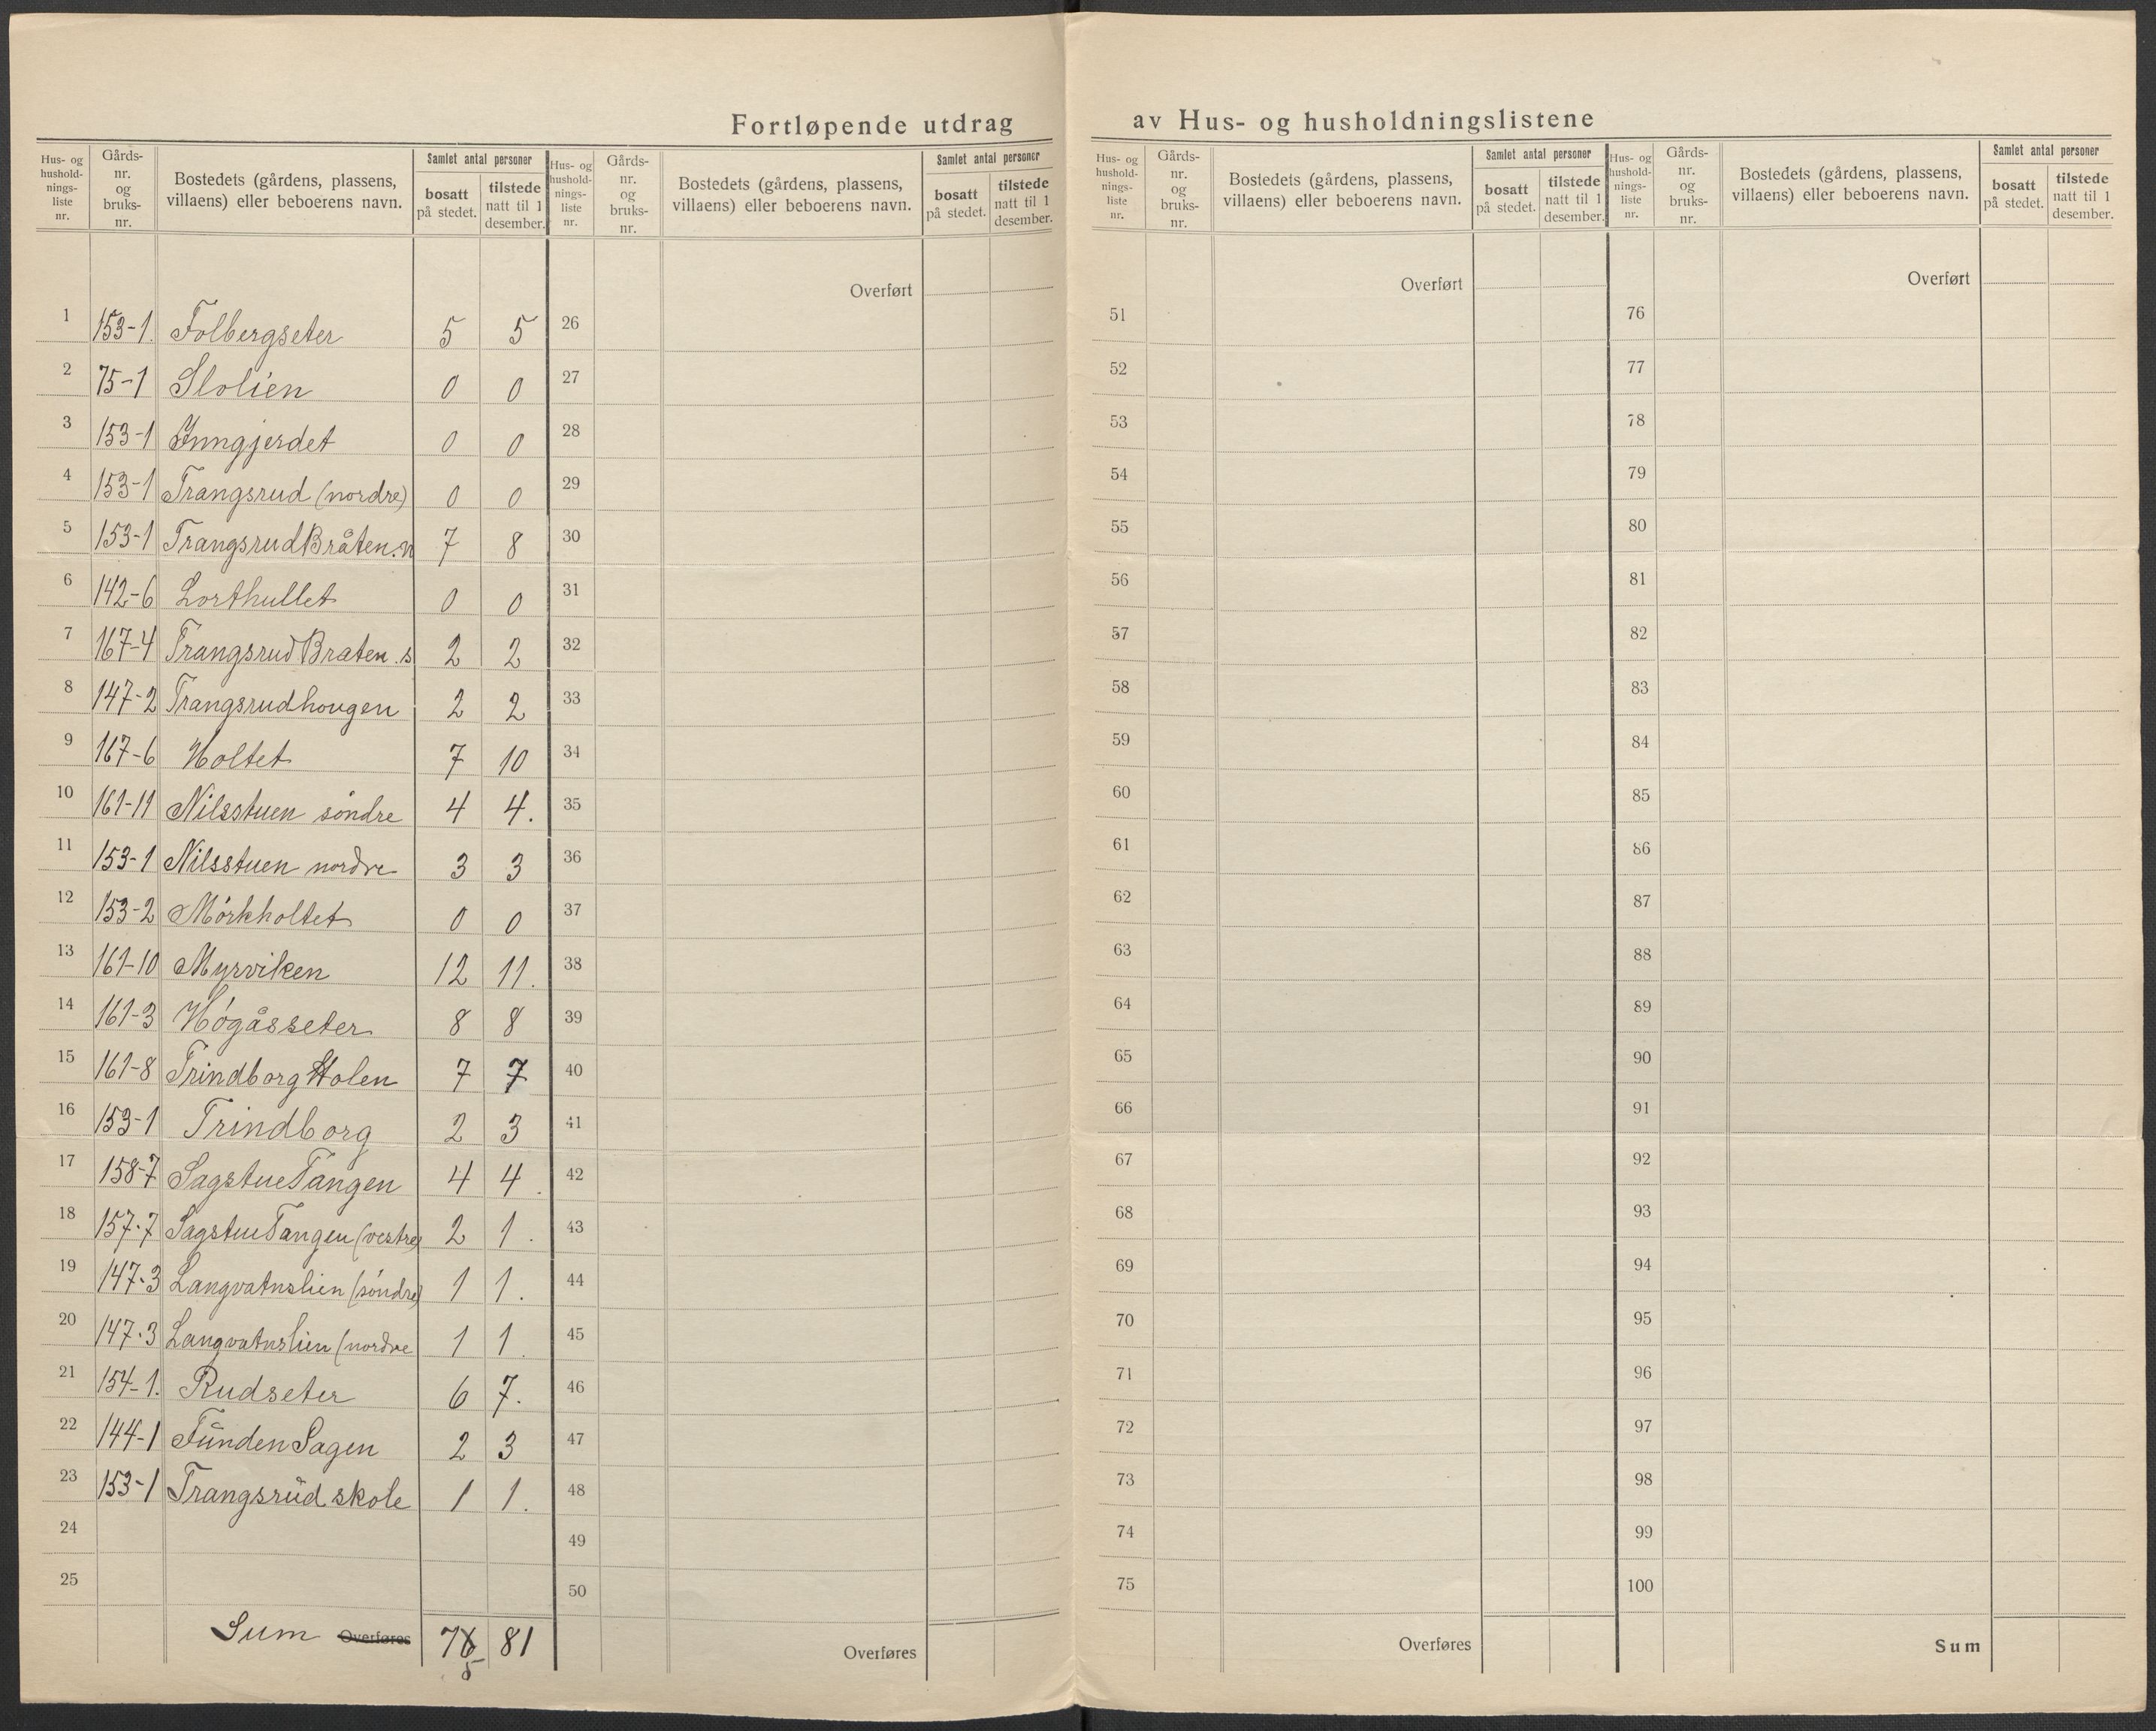 Fortløpende utdrag av Hus- og husholdningslistene
Hus- og hushold-nings-liste nr. Gårds-nr. og bruks-nr. Bostedets (gårdens, plassens, villaens) eller beboerens navn. Samlet antal personer bosatt på stedet. tilstede natt til 1 desember.
Hus- og hushold-nings-liste nr. Gårds-nr. og bruks-nr. Bostedets (gårdens, plassens, villaens) eller beboerens navn. Samlet antal personer bosatt på stedet. tilstede natt til 1 desember.
Hus- og hushold-nings-liste nr. Gårds-nr. og bruks-nr. Bostedets (gårdens, plassens, villaens) eller beboerens navn. Samlet antal personer bosatt på stedet. tilstede natt til 1 desember.
Hus- og hushold-nings-liste nr. Gårds-nr. og bruks-nr. Bostedets (gårdens, plassens, villaens) eller beboerens navn. Samlet antal personer bosatt på stedet. tilstede natt til 1 desember.
Overført Overført Overført
1 153-1. Folbergseter 5 5 26 51 76
2 75-1 Slolien 0 0 27 52 77
3 153-1 Inngjerdet 0 0 28 53 78
4 153-1 Trangsrud (nordre) 0 0 29 54 79
5 153-1 TrangsrudBråten.n 7 8 30 55 80
6 142-6 Lorthullet 0 0 31 56 81
7 167-4 TrangsrudBraten.s 2 2 32 57 82
8 147-2 Trangsrudhougen 2 2 33 58 83
9 167-6 Holtet 7 10 34 59 84
10 161-11 Nilsstuen söndre 4 4. 35 60 85
11 153-1 Nilsstuen nordre 3 3 36 61 86
12 153-2 Mórkholtet 0 0 37 62 87
13 161-10 Myrviken 12 11. 38 63 88
14 161-3 Högåsseter 8 8 39 64 89
15 161-8 Trindborg Holen 7 7 40 65 90
16 153-1 Trindborg 2 3 41 66 91
17 158-7 SagstueTangen 4 4. 42 67 92
18 157-7 SagstueTangen (vestre) 2 1. 43 68 93
19 147-3 Langvatnslien (söndre) 1 1. 44 69 94
20 147-3 Langvatnslien (nordre 1 1. 45 70 95
21 154-1. Rudseter 6 7. 46 71 96
22 144-1 FündenSagen 2 3 47 72 97
23 153-1 Trangsrüd skole 1 1. 48 73 98
24 49 74 99
25 50 75 100
Sum Overføres 76 81 Overføres Overføres Sum
5